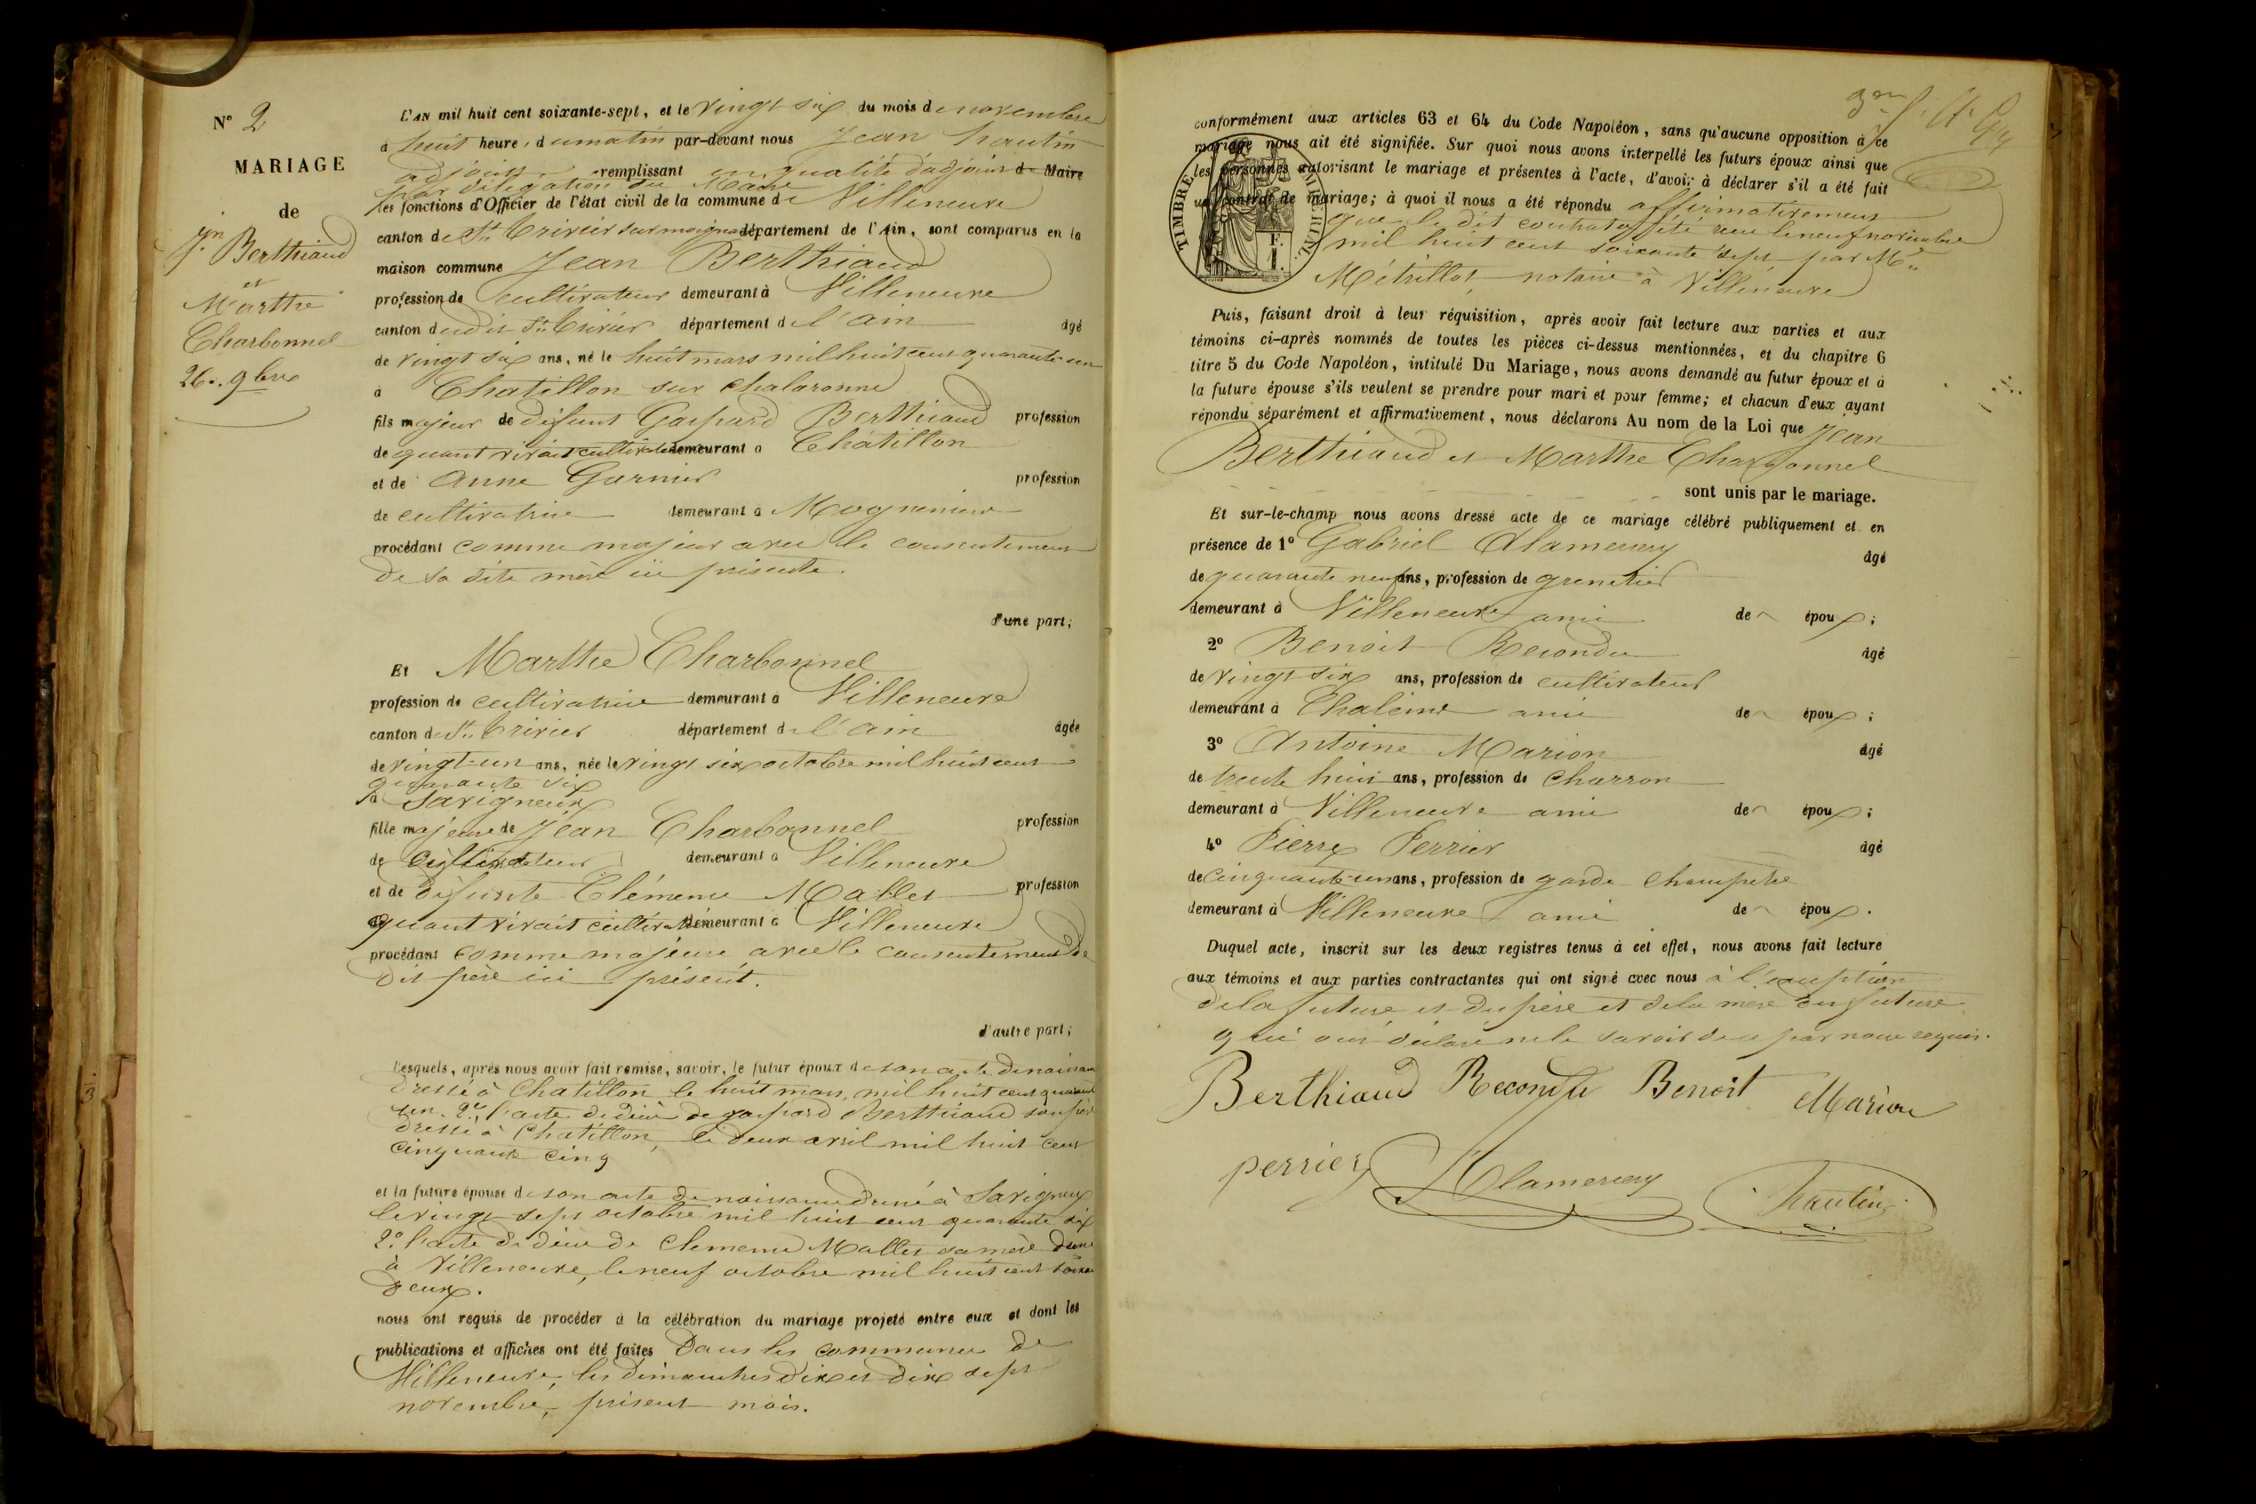 N° 2
MARIAGE
de
Jn Berthiaud
et
Marthe
Charbonnel
26. 9bre
L'AN mil huit cent soixante-sept, et le vingt six du mois de novembre
à huit heure, du matin par-devant nous Jean hautin
adjoint remplissant en qualité d'adjoint de Maire
par délégation du Maire
les fonctions d'Officier de l'état civil de la commune de Villeneuve
canton de St Trivier sur moignans département de l'Ain, sont comparus en la
maison commune Jean Berthiaud
profession de cultivateur demeurant à Villeneuve
canton dudit St Trivier département de l'ain âgé
de vingt six ans, né le huit mars mil huit cent quarante un
à Chatillon sur chalaronne
fils majeur de défunt Gaspard Berthiaud profession
de quant vivait cultivateur demeurant à Châtillon
et de Anne Garnier profession
de cultivatrice demeurant à Mogneneins
procédant comme majeur avec le consentement
de sa dite mère ici présente.
d'une part;
Et Marthe Charbonnel
profession de cultivatrice demeurant à Villeneuve
canton de St Trivier département de l'ain âgée
de vingt-un ans, née le vingt six octobre mil huit cent
quarante six
à Savigneux
fille majeure de Jean Charbonnel profession
de cultivateur demeurant à Villeneuve
et de défunte Clémence Mallet profession
de quant vivait cultivatrice demeurant à Villeneuve
procédant comme majeure avec le consentement de
dit père ici présent.
d'autre part;
Lesquels, après nous avoir fait remise, savoir, le futur époux de son acte de naissance
dressé à Chatillon le huit mars mil huit cent quarante
un. 2° l'acte de décès de gaspard Berthiaud son père
dressé à Chatillon, le deux avril mil huit cent
cinquante cinq
et la future épouse de son acte de naissance dressé à Savigneux
le vingt sept octobre mil huit cent quarante six
2° l'acte de décès de Clemence Mallet sa mère dressé
à Villeneuve, le neuf octobre mil huit cent soixante
deux.
nous ont requis de procéder à la célébration du mariage projeté entre eux et dont les
publications et affiches ont été faites Dans les communes de
Villeneuve, les dimanches dix et dix sept
novembre, présent mois.
conformément aux articles 63 et 64 du Code Napoléon, sans qu'aucune opposition à ce
mariage nous ait été signifiée. Sur quoi nous avons interpellé les futurs époux ainsi que
les personnes autorisant le mariage et présentes à l'acte, d'avoir à déclarer s'il a été fait
un contrat de mariage; à quoi il nous a été répondu affirmativement
que le dit contrat a été reçu le neuf novembre
mil huit cent soixante sept par Me
Métrillot, notaire à Villeneuve
TIMBRE IMPÉRIAL
1 F.
Puis, faisant droit à leur réquisition, après avoir fait lecture aux parties et aux
témoins ci-après nommés de toutes les pièces ci-dessus mentionnées, et du chapitre 6
titre 5 du Code Napoléon, intitulé Du Mariage, nous avons demandé au futur époux et à
la future épouse s'ils veulent se prendre pour mari et pour femme; et chacun d'eux ayant
répondu séparément et affirmativement, nous déclarons Au nom de la Loi que Jean
Berthiaud et Marthe Charbonnel
sont unis par le mariage.
Et sur-le-champ nous avons dressé acte de ce mariage célébré publiquement et en
présence de 1° Gabriel Alamercery âgé
de quarante neuf ans, profession de grenetier
demeurant à Villeneuve ami de époux;
2° Benoit Recondu âgé
de vingt six ans, profession de cultivateur
demeurant à Chaleins ami de époux;
3° Antoine Marion âgé
de trente huit ans, profession de Charron
demeurant à Villeneuve ami de époux;
4° Pierre Perrier âgé
de cinquante un ans, profession de garde Champêtre
demeurant à Villeneuve ami de époux.
Duquel acte, inscrit sur les deux registres tenus à cet effet, nous avons fait lecture
aux témoins et aux parties contractantes qui ont signé avec nous à l'exception
de la future et du père et de la mère des futurs
qui ont déclaré ne le savoir de ce par nous requis.
Berthiaud Recondu Benoit Marion
perrier Alamercery hautin